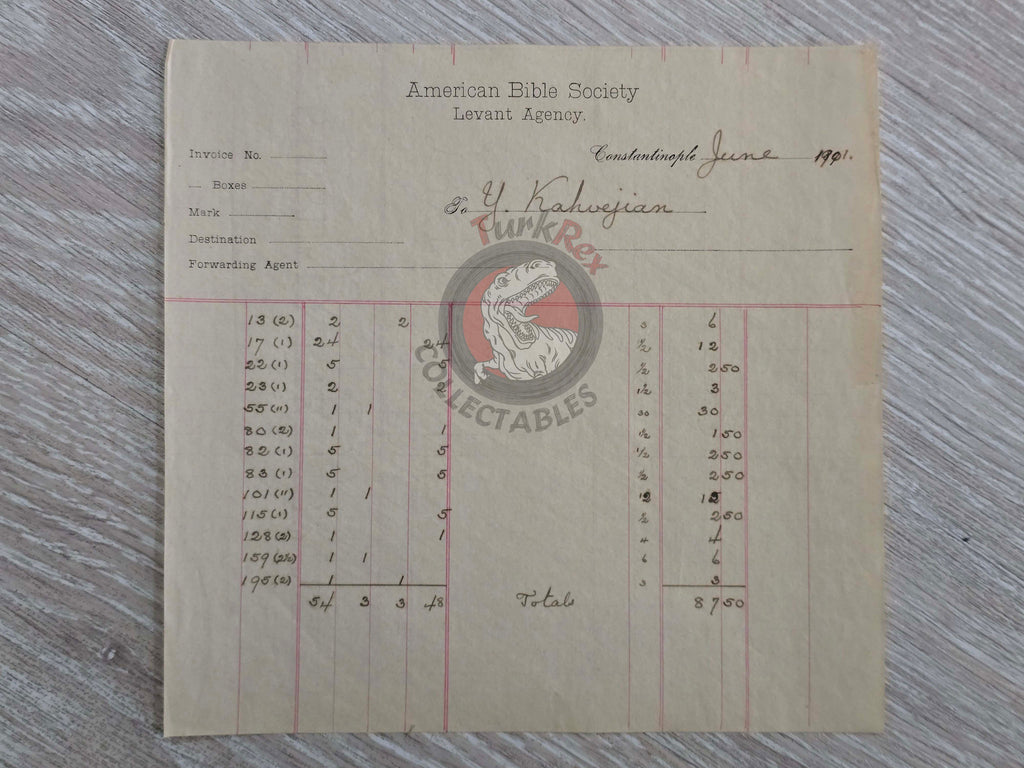 American Bible Society
Levant Agency.
Invoice No.
Constantinople June 1901.
Boxes
To Y. Kahvejian
Mark
Destination
Forwarding Agent
TurkRex
COLLECTABLES
13 (2) 2 2 3 6
17 (1) 24 24 ½ 12
22 (1) 5 5 ½ 2 50
23 (1) 2 2 1½ 3
55 (11) 1 1 30 30
80 (2) 1 1 1½ 1 50
82 (1) 5 5 ½ 2 50
83 (1) 5 5 ½ 2 50
101 (11) 1 1 12 12
115 (1) 5 5 ½ 2 50
128 (2) 1 1 4 4
159 (2½) 1 1 6 6
195 (2) 1 1 3 3
54 3 3 48 Totals 87 50